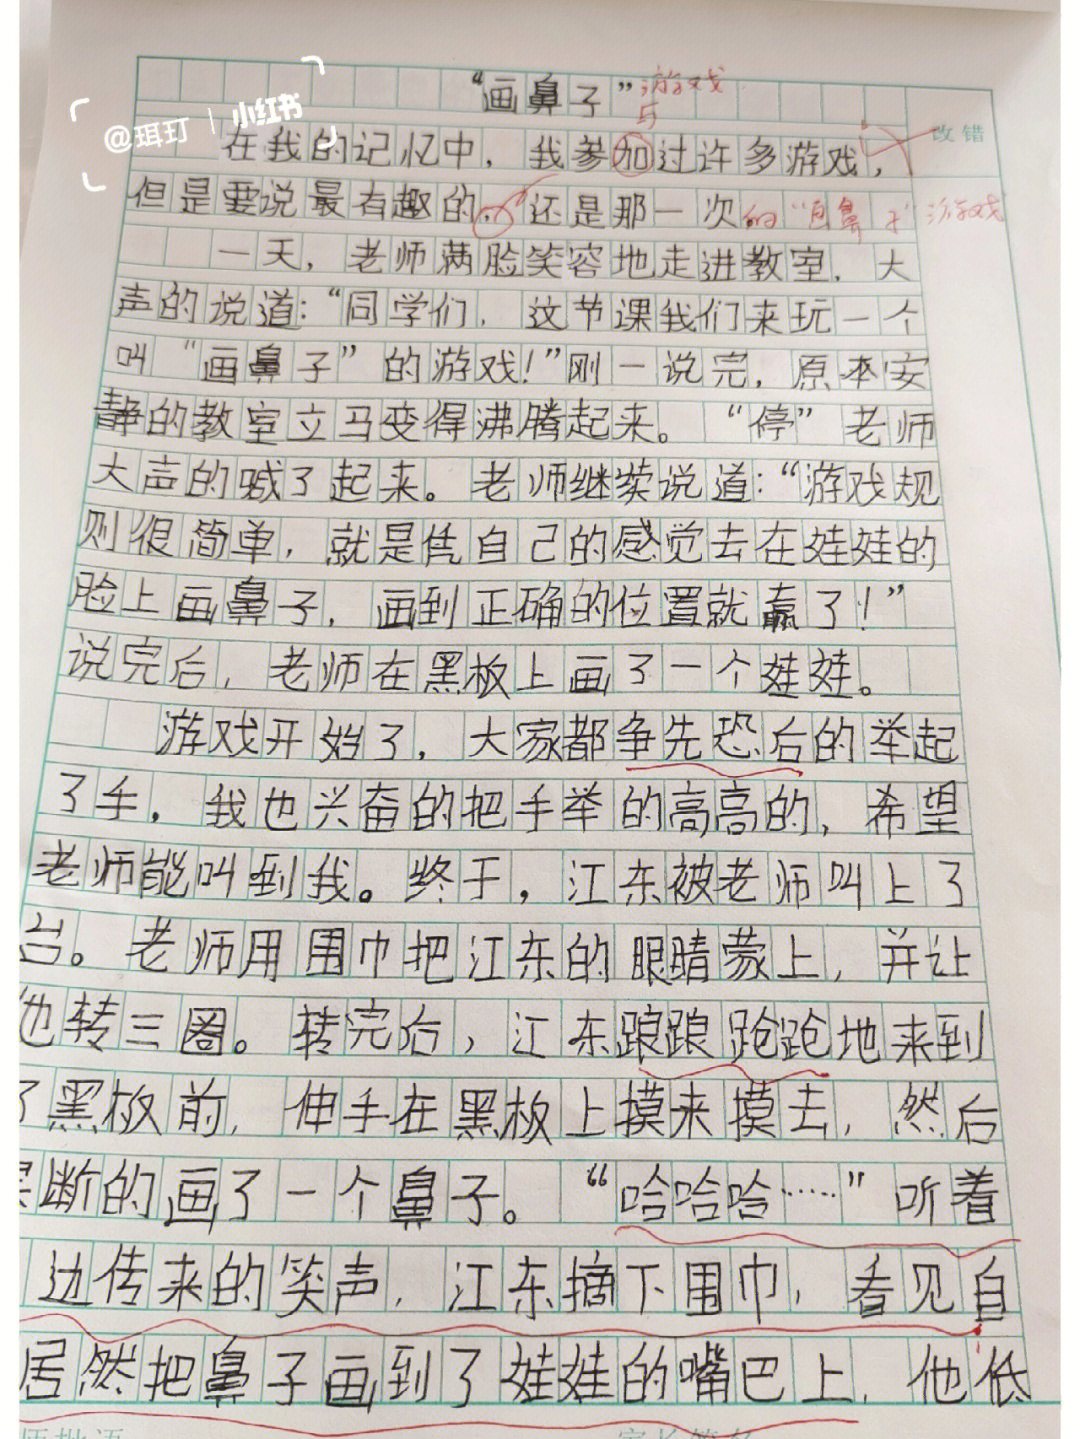 “画鼻子”游戏
@珥玎 小红书
与
在我的记忆中，我参加过许多游戏，
改错
但是要说最有趣的，还是那一次的“画鼻子”游戏
一天，老师满脸笑容地走进教室，大
声的说道：“同学们，这节课我们来玩一个
叫“画鼻子”的游戏！”刚一说完，原本安
静的教室立马变得沸腾起来。“停”老师
大声的喊了起来。老师继续说道：“游戏规
则很简单，就是凭自己的感觉去在娃娃的
脸上画鼻子，画到正确的位置就赢了！”
说完后，老师在黑板上画了一个娃娃。
游戏开始了，大家都争先恐后的举起
了手，我也兴奋的把手举的高高的，希望
老师能叫到我。终于，江东被老师叫上了
台。老师用围巾把江东的眼睛蒙上，并让
他转三圈。转完后，江东踉踉跄跄地来到
了黑板前，伸手在黑板上摸来摸去，然后
果断的画了一个鼻子。“哈哈哈……”听着
边传来的笑声，江东摘下围巾，看见自
居然把鼻子画到了娃娃的嘴巴上，他低
师批语
家长签名